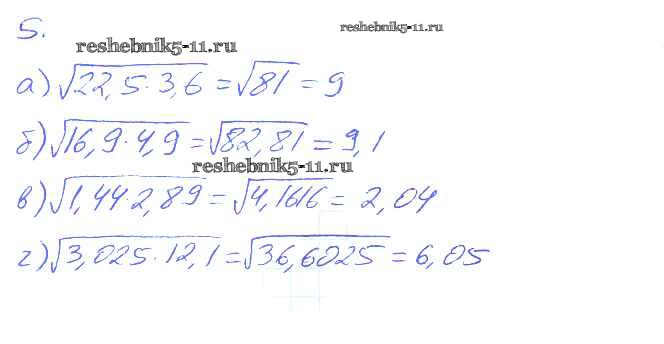 5.
reshebnik5-11.ru
reshebnik5-11.ru
а) √22,5·3,6 = √81 = 9
б) √16,9·4,9 = √82,81 = 9,1
reshebnik5-11.ru
в) √1,44·2,89 = √4,1616 = 2,04
г) √3,025·12,1 = √36,6025 = 6,05